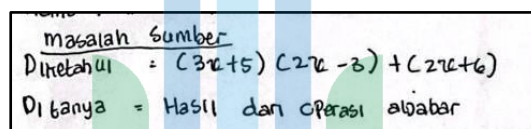 masalah sumber
Diketahui : (3x+5) (2x-3) + (2x+6)
Ditanya = Hasil dari operasi aljabar